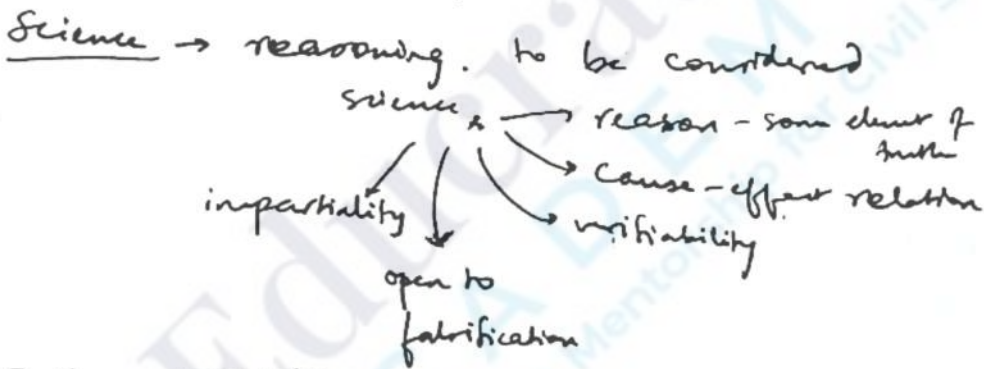 Science → reasoning. to be considered
science,
→ reason - some element of truth
→ cause - effect relation
impartiality
verifiability
open to
falsification